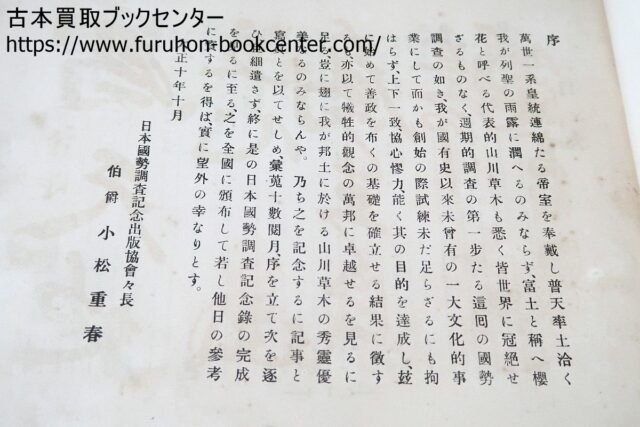 古本買取ブックセンター
https://www.furuhon-bookcenter.com/
序
萬世一系皇統連綿たる帝室を奉戴し普天率土洽く
我が列聖の雨露に潤へるのみならず、富士と稱へ櫻
花と呼べる代表的山川草木も悉く皆世界に冠絶せ
ざるものなく、週期的調査の第一步たる這囘の國勢
調査の如き、我が國有史以來未曾有の一大文化的事
業にして而かも創始の際試練未だ足らざるにも拘
はらず、上下一致、協心戮力、能く其の目的を達成し、玆
に始めて善政を布くの基礎を確立せる結果に徵す
るも、亦以て犧牲的觀念の萬邦に卓越せるを見るに
足る、豈に翅に我が邦土に於ける山川草木の秀靈優
美なるのみならんや。乃ち之を記念するに記事と
寫眞とを以てせしめ、彙蒐十數閱月、序を立て次を逐
ひ細遺さず、終に是の日本國勢調査記念錄の完成
をするに至る、之を全國に頒布して若し他日の參考
に資するを得ば、實に望外の幸なりとす。
大正十年十月
日本國勢調査記念出版協會々長
伯爵 小松重春